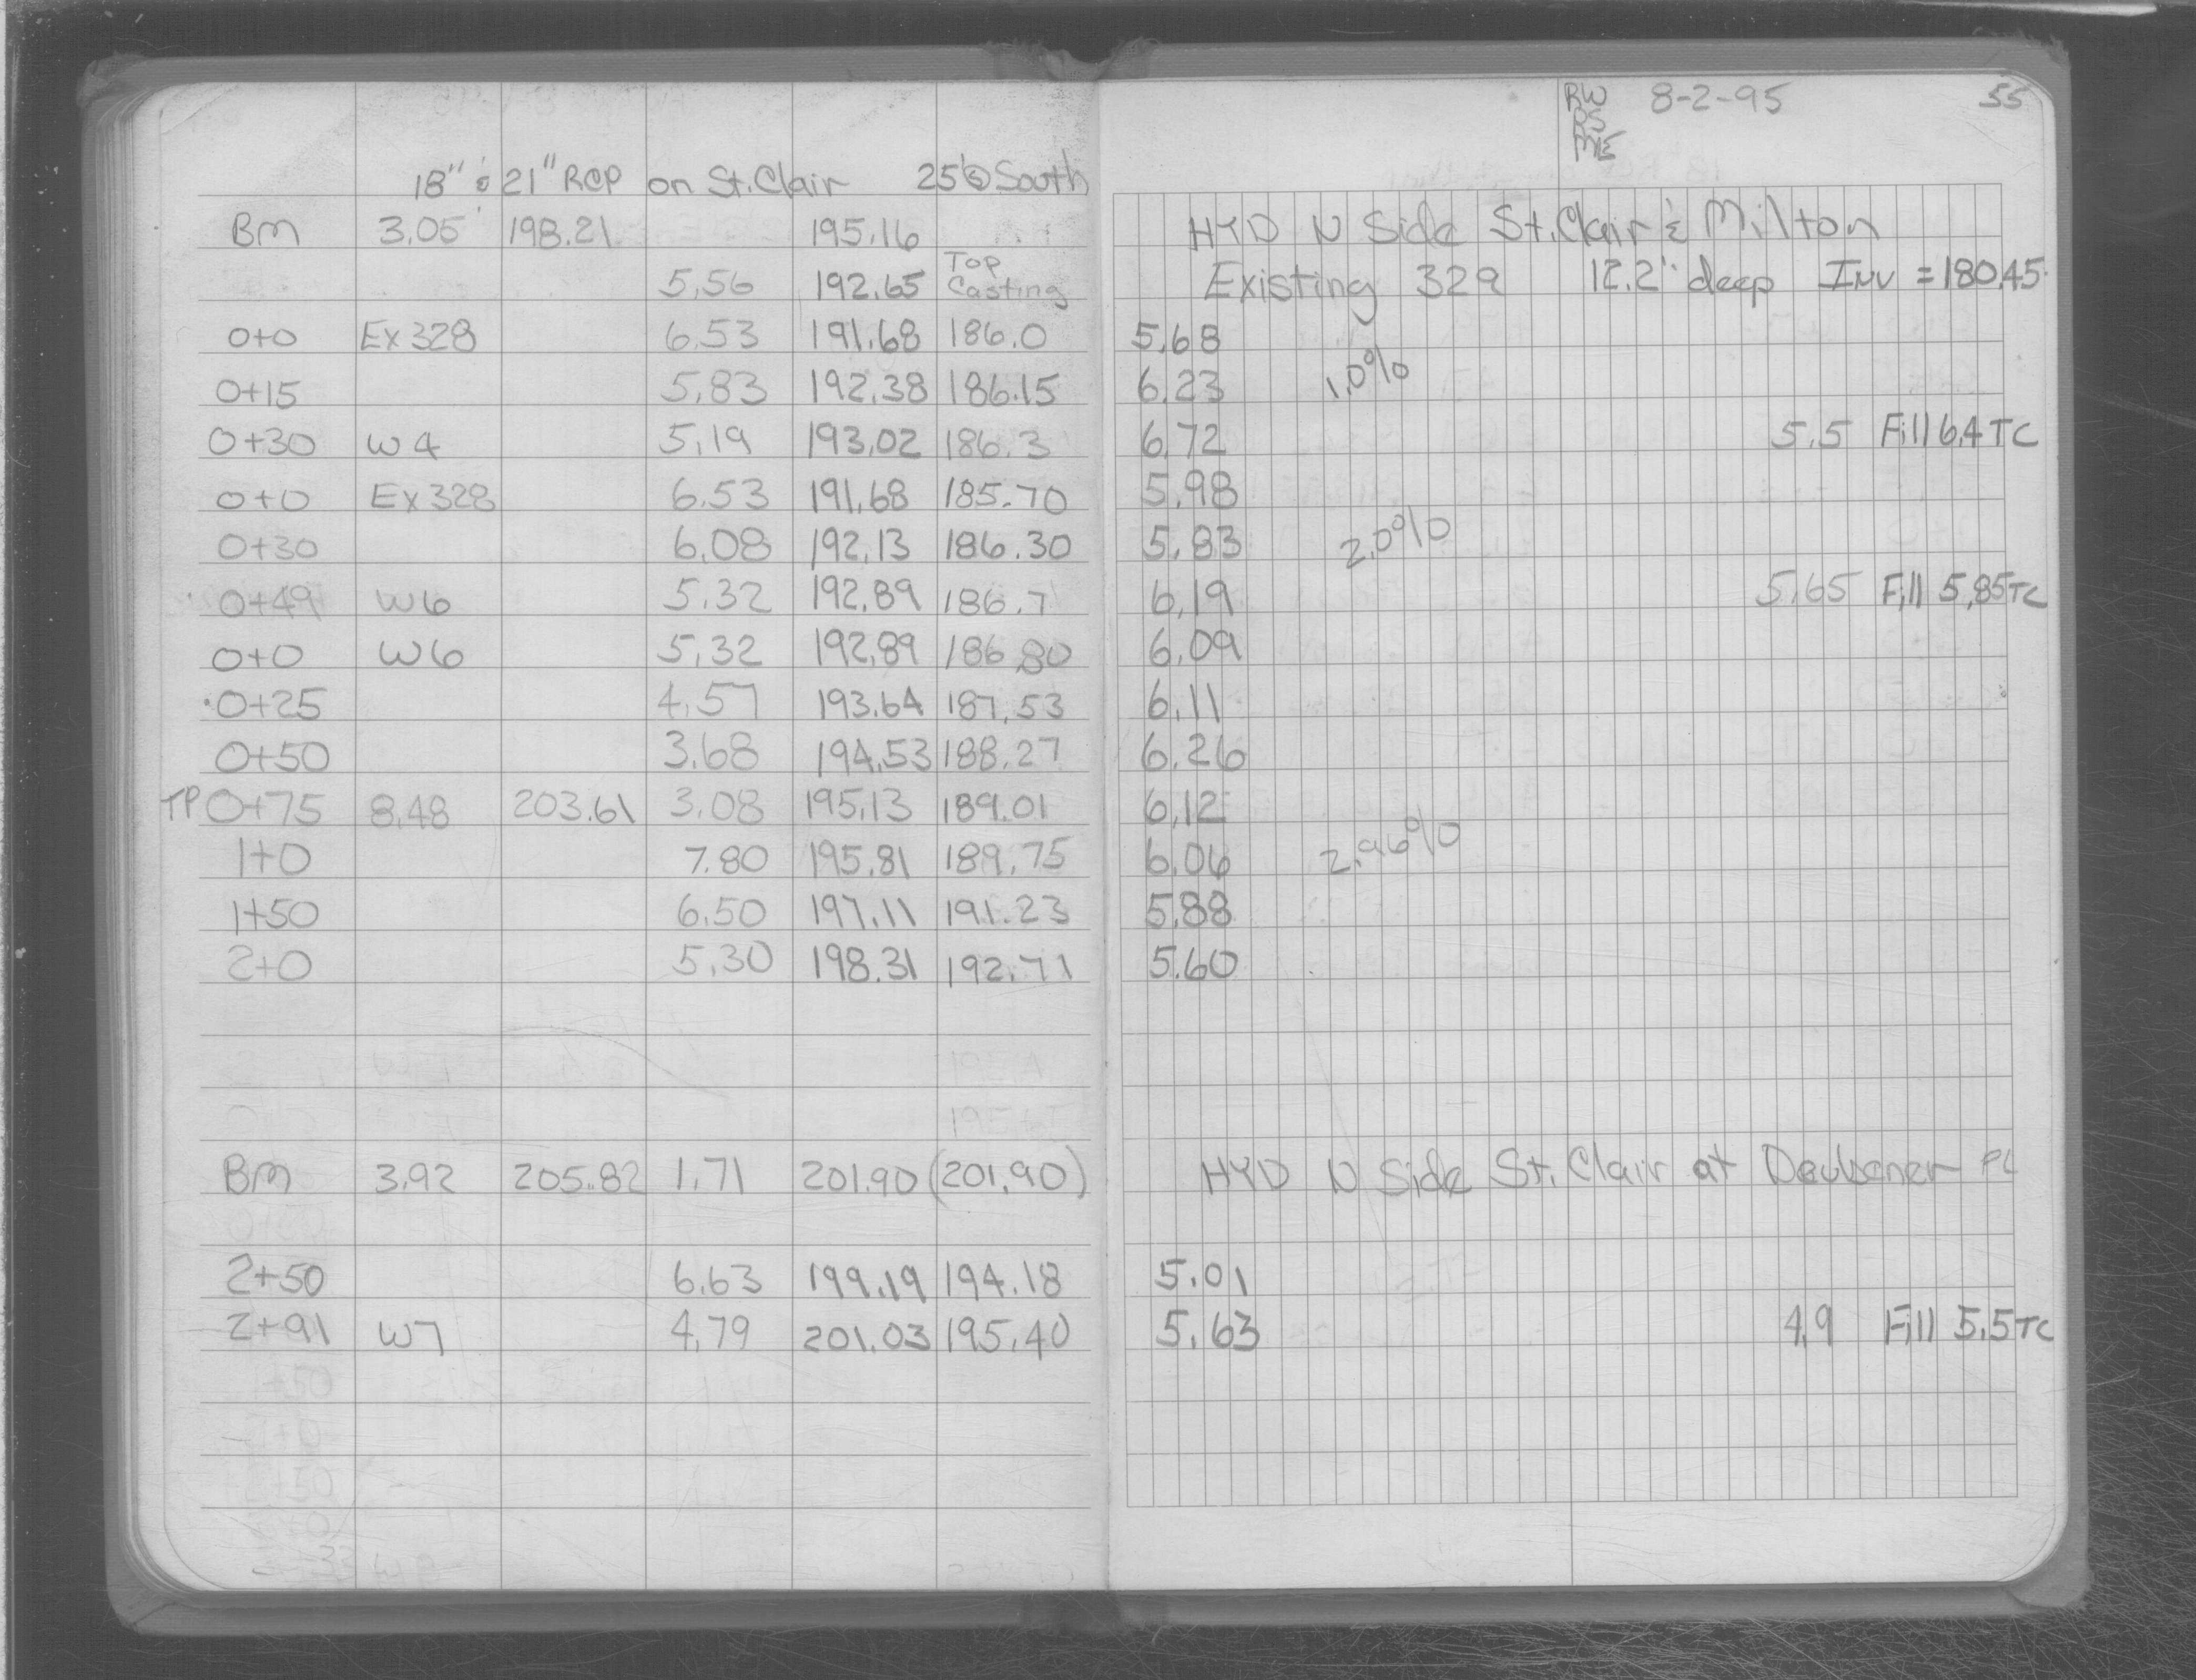 18" & 21" RCP on St. Clair 25' @ South
BM 3.05 198.21 195.16
5.56 192.65 Top Casting
0+0 Ex 328 6.53 191.68 186.0
0+15 5.83 192.38 186.15
0+30 W4 5.19 193.02 186.3
0+0 Ex 328 6.53 191.68 185.70
0+30 6.08 192.13 186.30
0+49 W6 5.32 192.89 186.7
0+0 W6 5.32 192.89 186.80
0+25 4.57 193.64 187.53
0+50 3.68 194.53 188.27
TP 0+75 8.48 203.61 3.08 195.13 189.01
1+0 7.80 195.81 189.75
1+50 6.50 197.11 191.23
2+0 5.30 198.31 192.71
BM 3.92 205.82 1.71 201.90 (201.90)
2+50 6.63 199.19 194.18
2+91 W7 4.79 201.03 195.40
RW 8-2-95 55
DS
ME
HYD N Side St. Clair & Milton
Existing 329 12.2' deep Inv = 180.45
5.68
6.23 1.0%
6.72 5.5 Fill 6.4 TC
5.98
5.83 2.0%
6.19 5.65 Fill 5.85 TC
6.09
6.11
6.26
6.12
6.06 2.96%
5.88
5.60
HYD N Side St. Clair at Deubener PL
5.01
5.63 4.9 Fill 5.5 TC